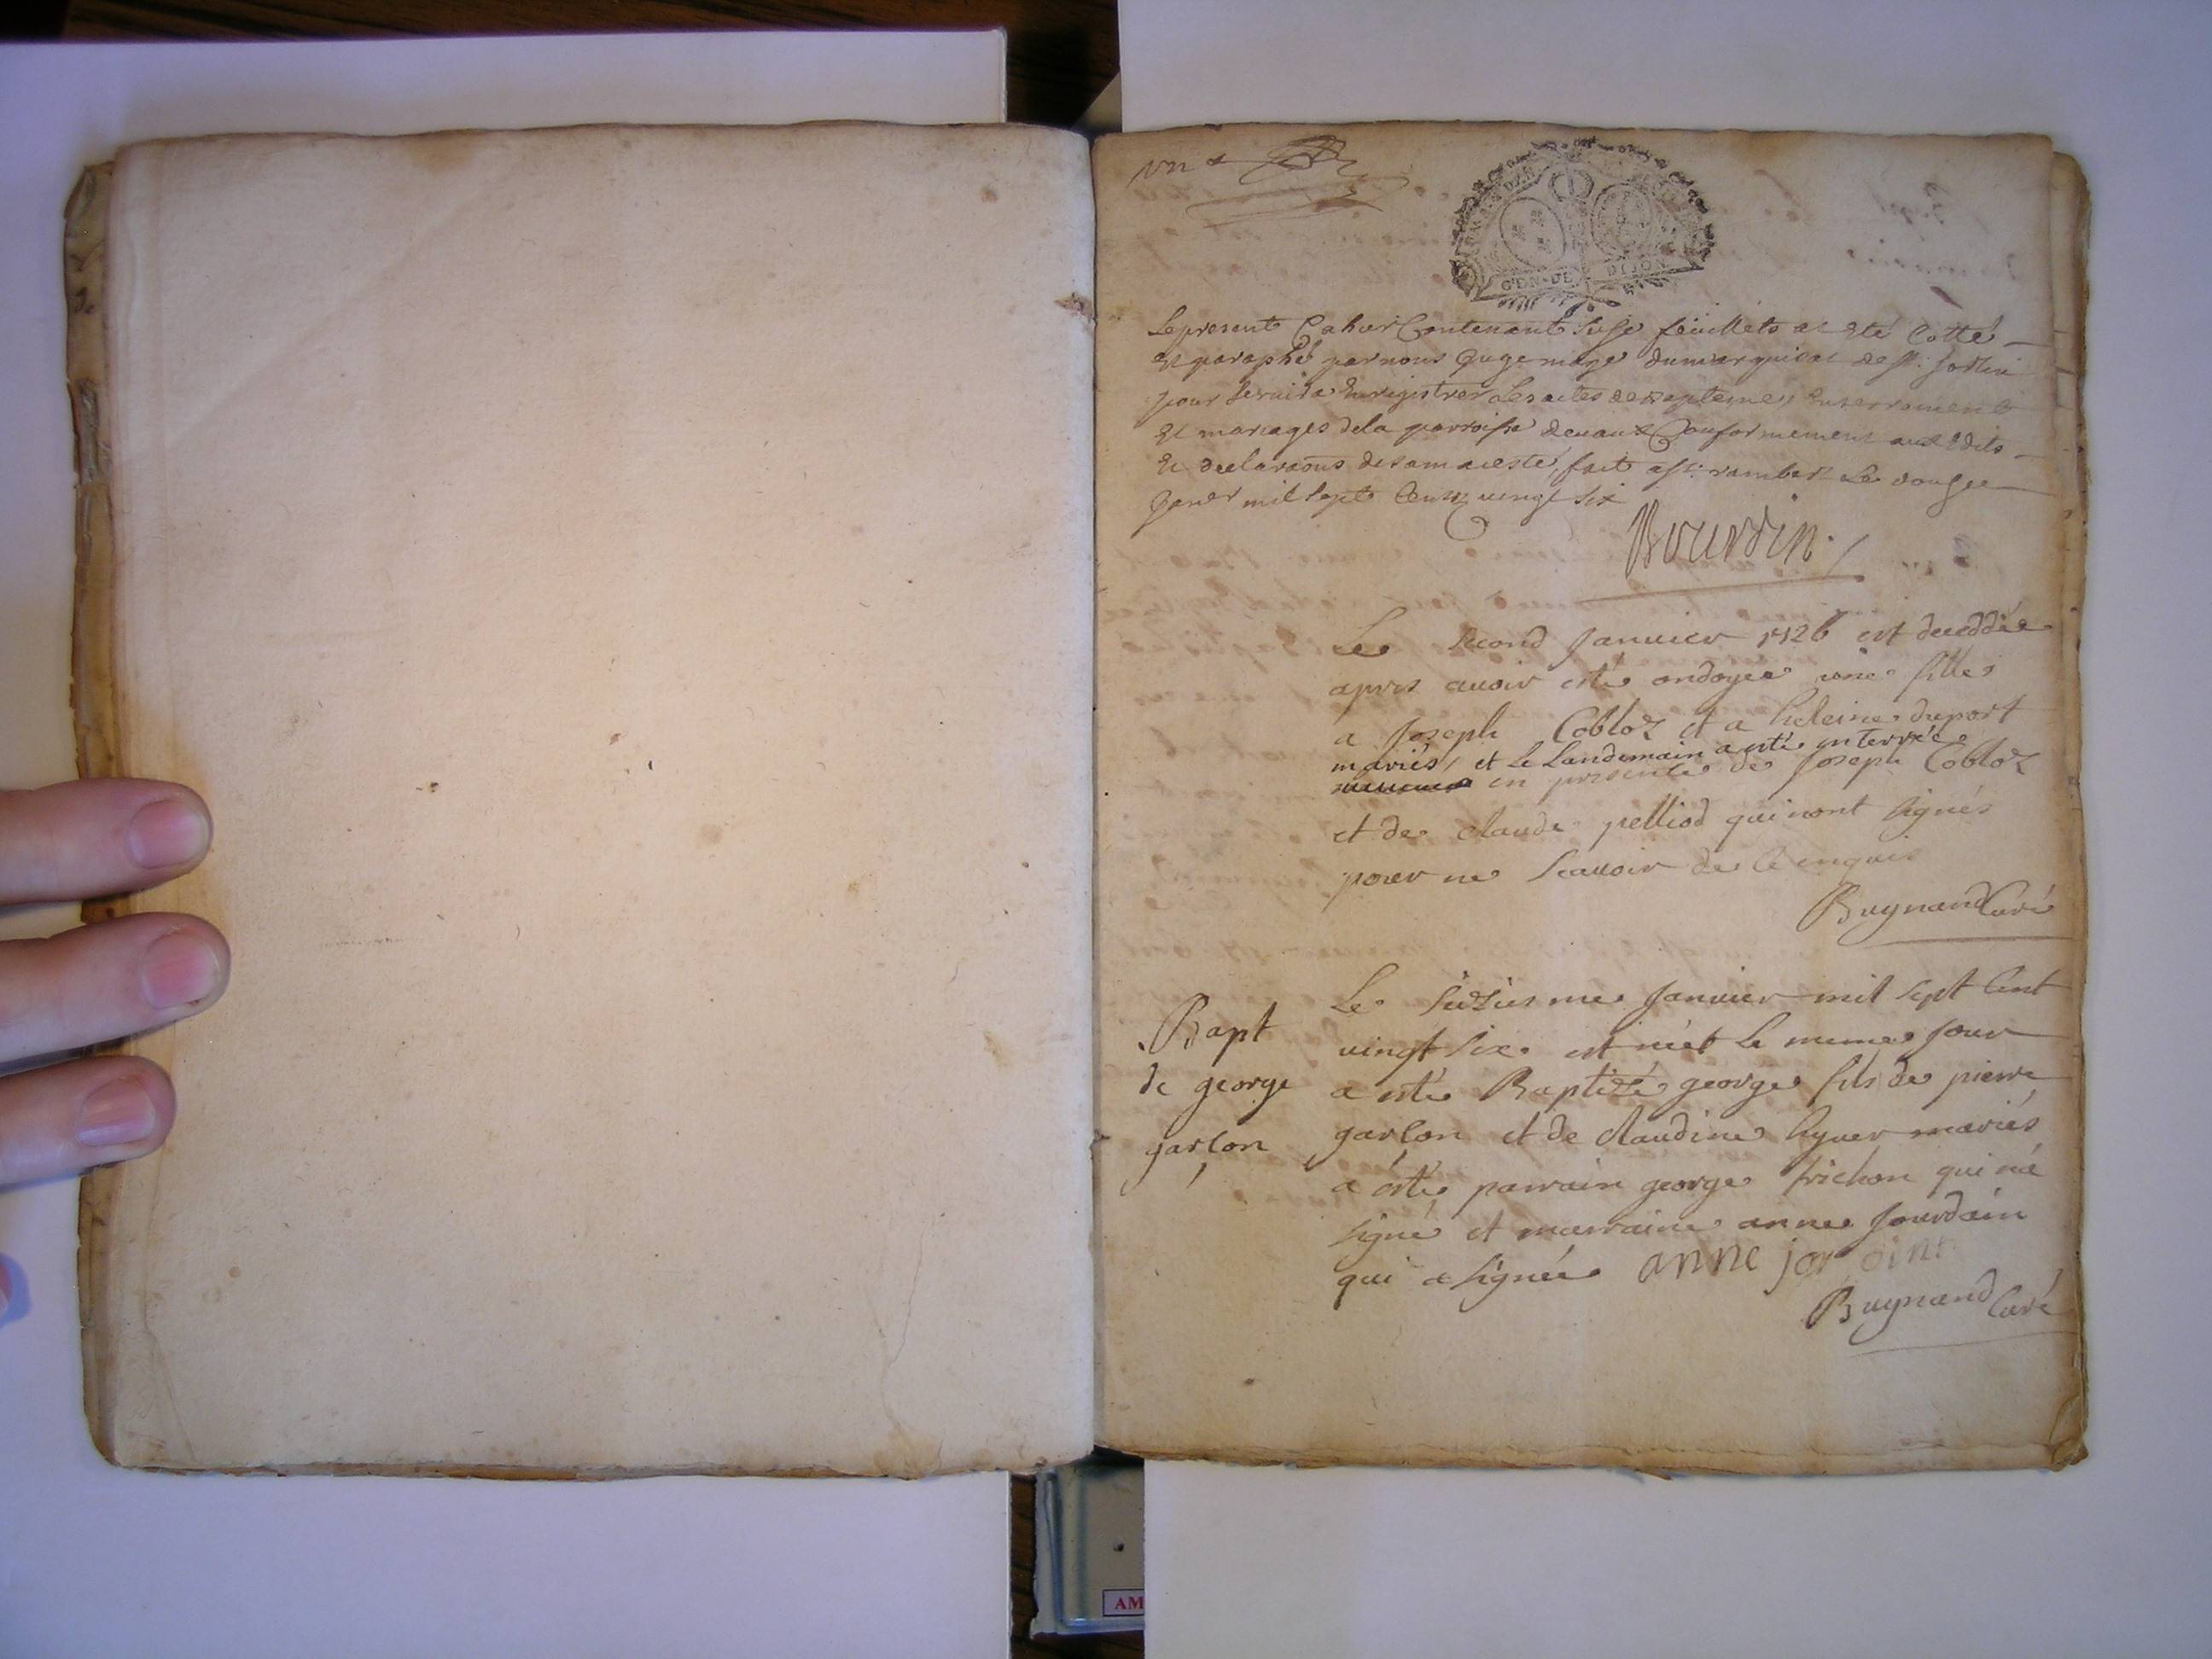 un
GEN · DE DIJON
Le present Cahier Contenant seise feüillets at eté Cotté
et paraphé par nous Juge mage du marquisat de St. Sorlin
pour servir a Enregistrer Les actes de Baptemes Enterrement
et mariages de la parroisse de vaux Conformement aux Edits
Et declaraons de sa majesté, fait a St. rambert Le douse
Janer mil sept Cents vingt six
Bourdin
Le second Janvier 1726 est deceddée
apres avoir esté ondoyée une fille
a Joseph Cobloz et a heleine duport
mariés, et Le Landemain a esté enterrée
en presence de Joseph Cobloz
et de claude pelliod qui nont signés
pour ne Scavoir de ce enquis
Buynand Curé
Bapt
de george
garçon
Le sixiesme Janvier mil sept Cent
vingt six est né et le meme jour
a esté Baptizé george fils de pierre
garçon et de claudine hyver mariés
a esté parrain george trichon qui na
signé et marraine anne Jourdain
qui a signée anne
Buynand Curé
AM